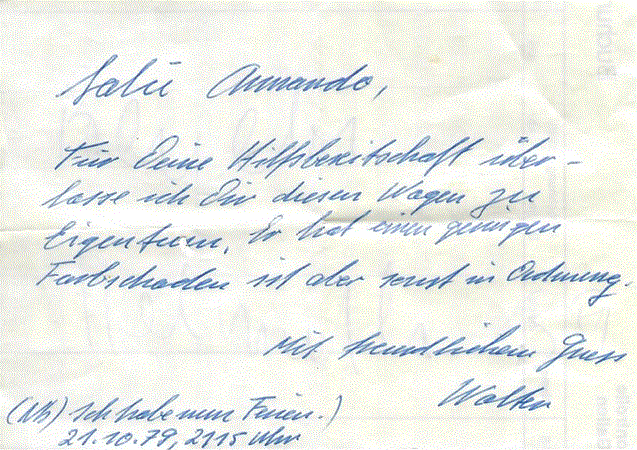 Salü Armando,
Für Deine Hilfsbereitschaft über-
lasse ich Dir diesen Wagen zu
Eigentum. Er hat einen geringen
Farbschaden ist aber sonst in Ordnung.
Mit freundlichem Gruss
Walter
(Nb) Ich habe nun Ferien.)
21.10.79, 2115 Uhr